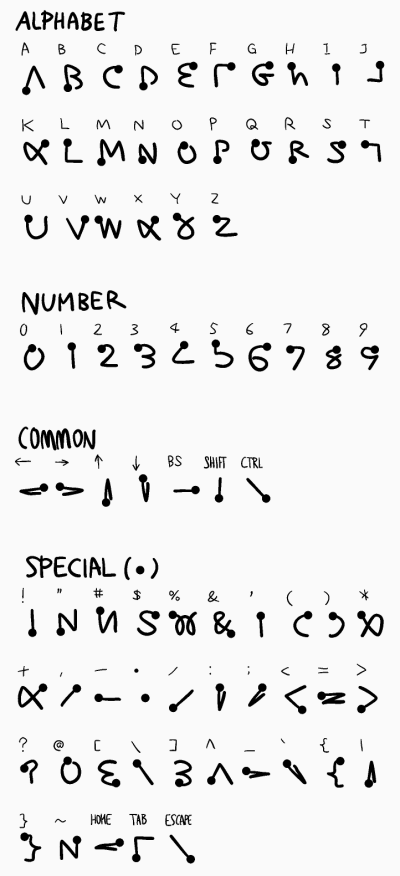 ALPHABET
A B C D E F G H I J
K L M N O P Q R S T
U V W X Y Z
NUMBER
0 1 2 3 4 5 6 7 8 9
COMMON
← → ↑ ↓ BS SHIFT CTRL
SPECIAL (•)
! " # $ % & ' ( ) *
+ , - • / : ; < = >
? @ [ \ ] ^ _ ` { |
} ~ HOME TAB ESCAPE